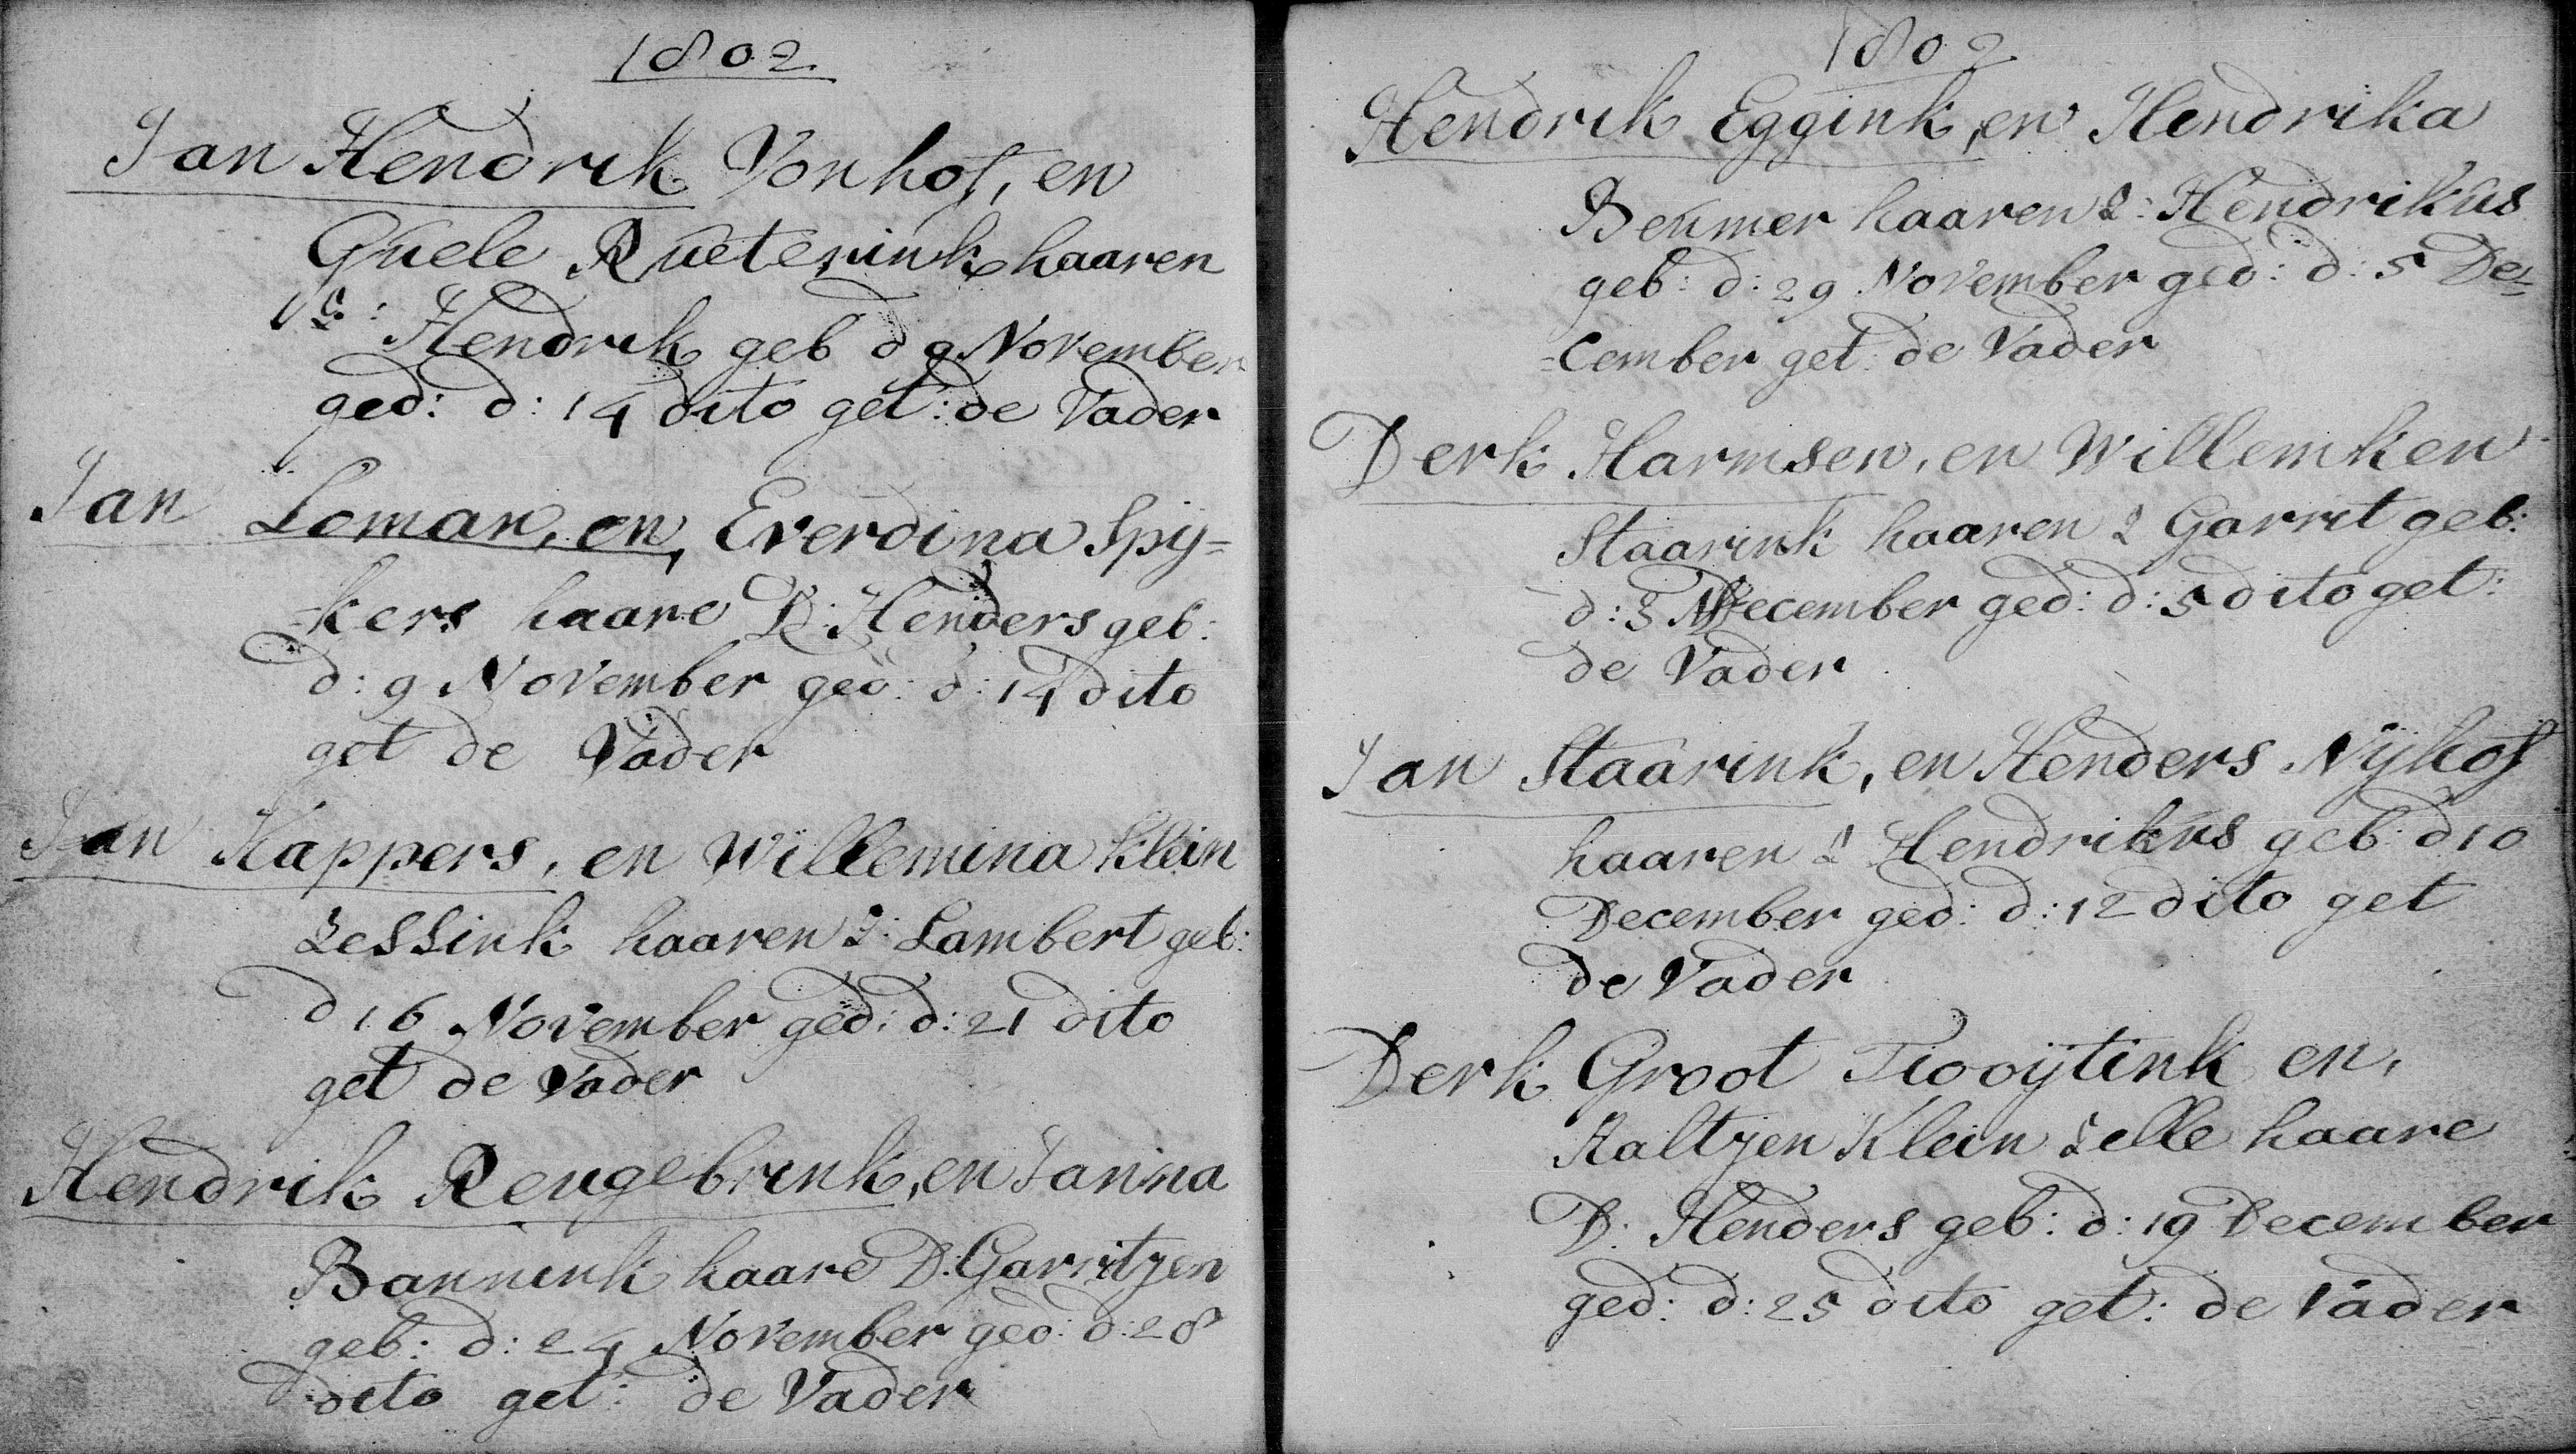 1802
Jan Hendrik Vonhof, en
Guele Rueterink haaren
Z: Hendrik geb d 9 November
ged: d: 14 dito get: de Vader
Jan Loman, en, Everdina Spy=
=kers haare D: Henders geb:
d: 9 November ged: d: 14 dito
get de Vader
Jan Kappers, en Willemina Klein
Lessink haaren Z: Lambert geb:
d 16 November ged: d: 21 dito
get de Vader
Hendrik Reugebrink, en Janna
Bannink haare D: Garritjen
geb: d: 24 November ged: d: 28
dito get: de Vader
1802
Hendrik Eggink, en Hendrika
Beumer haaren Z: Hendrikus
geb: d: 29 November ged: d: 5 De=
=cember get: de Vader
Derk Harmsen, en Willemken
Staarink haaren Z Garrit geb:
d: 3 December ged: d: 5 dito get:
de Vader
Jan Staarink, en Henders Nijhof
haaren Z Hendrikus geb: d 10
December ged: d: 12 dito get
de Vader
Derk Groot en,
Aaltjen Klein Zelle haare
D. Henders geb: d: 19 December
ged: d: 25 dito get: de Vader